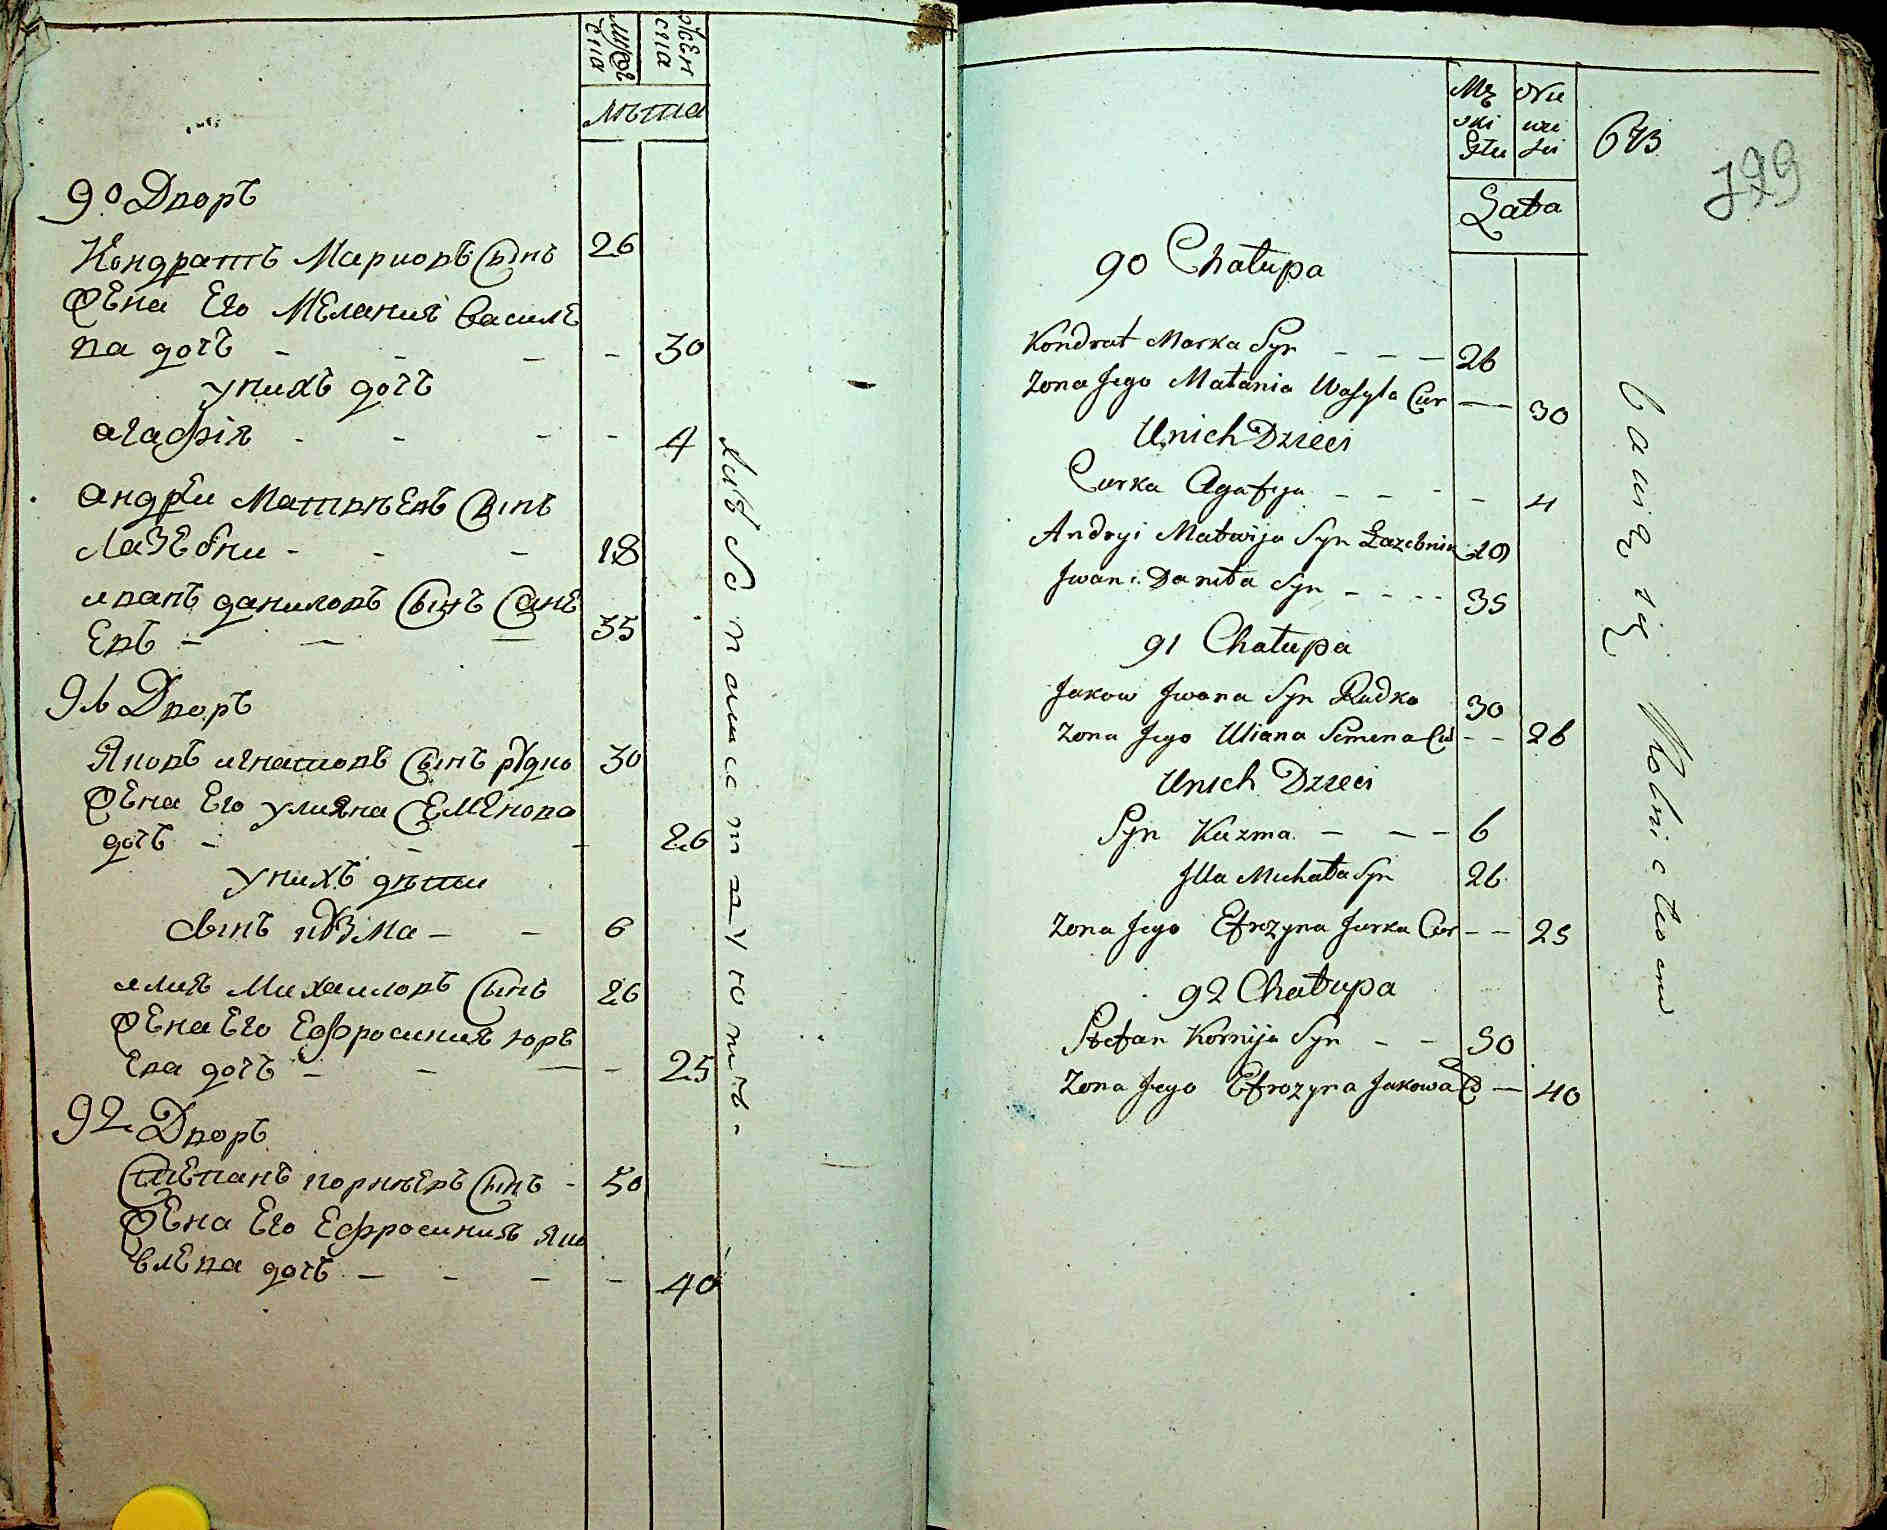 мужеска
женска
лѣта
90 Дворъ
Кондратъ Марковъ Сынъ 26
Жена Его Мелания Василе
ва дочь - - - - 30
у нихъ дочь
агафія - - - - 4
андреи Матвѣевъ Сынъ
Лазебни - - - 18
иванъ даниловъ Сынъ Сане
евъ - - - 35
91 Дворъ
Яковъ игнатовъ Сынъ рудко 30
Жена Его улияна Семенова
дочь - - - 26
у нихъ дѣти
Сынъ кузма - - 6
илия Михаиловъ Сынъ 26
Жена Его Ефросиния юрь
ева дочь - - - - 25
92 Дворъ
Степанъ корнѣевъ Сынъ - 50
Жена Его Ефросиния яко
влева дочь - - - - 40
хлѣбопашествуютъ
Męskiey Płci
Żeńskiey
Lata
673
799
90 Chałupa
Kondrat Marka Syn - - - 26
Zona Jego Małania Wasyla Cur - 30
U nich Dzieci
Curka Agafya - - - - 4
Andryi Matwija Syn Łazebnik 19
Jwan Daniła Syn - - - - 35
91 Chałupa
Jakow Jwana Syn Rudko 30
Zona Jego Uliana Semena Cór - - 26
U nich Dzieci
Syn Kuzma - - - 6
Jlla Michała Syn 26
Zona Jego Efrozyna Jurka Cur - - 25
92 Chałupa
Stefan Kornija Syn - - 50
Zona Jego Efrozyna Jakowa C - 40
bawią się Rolnictwem